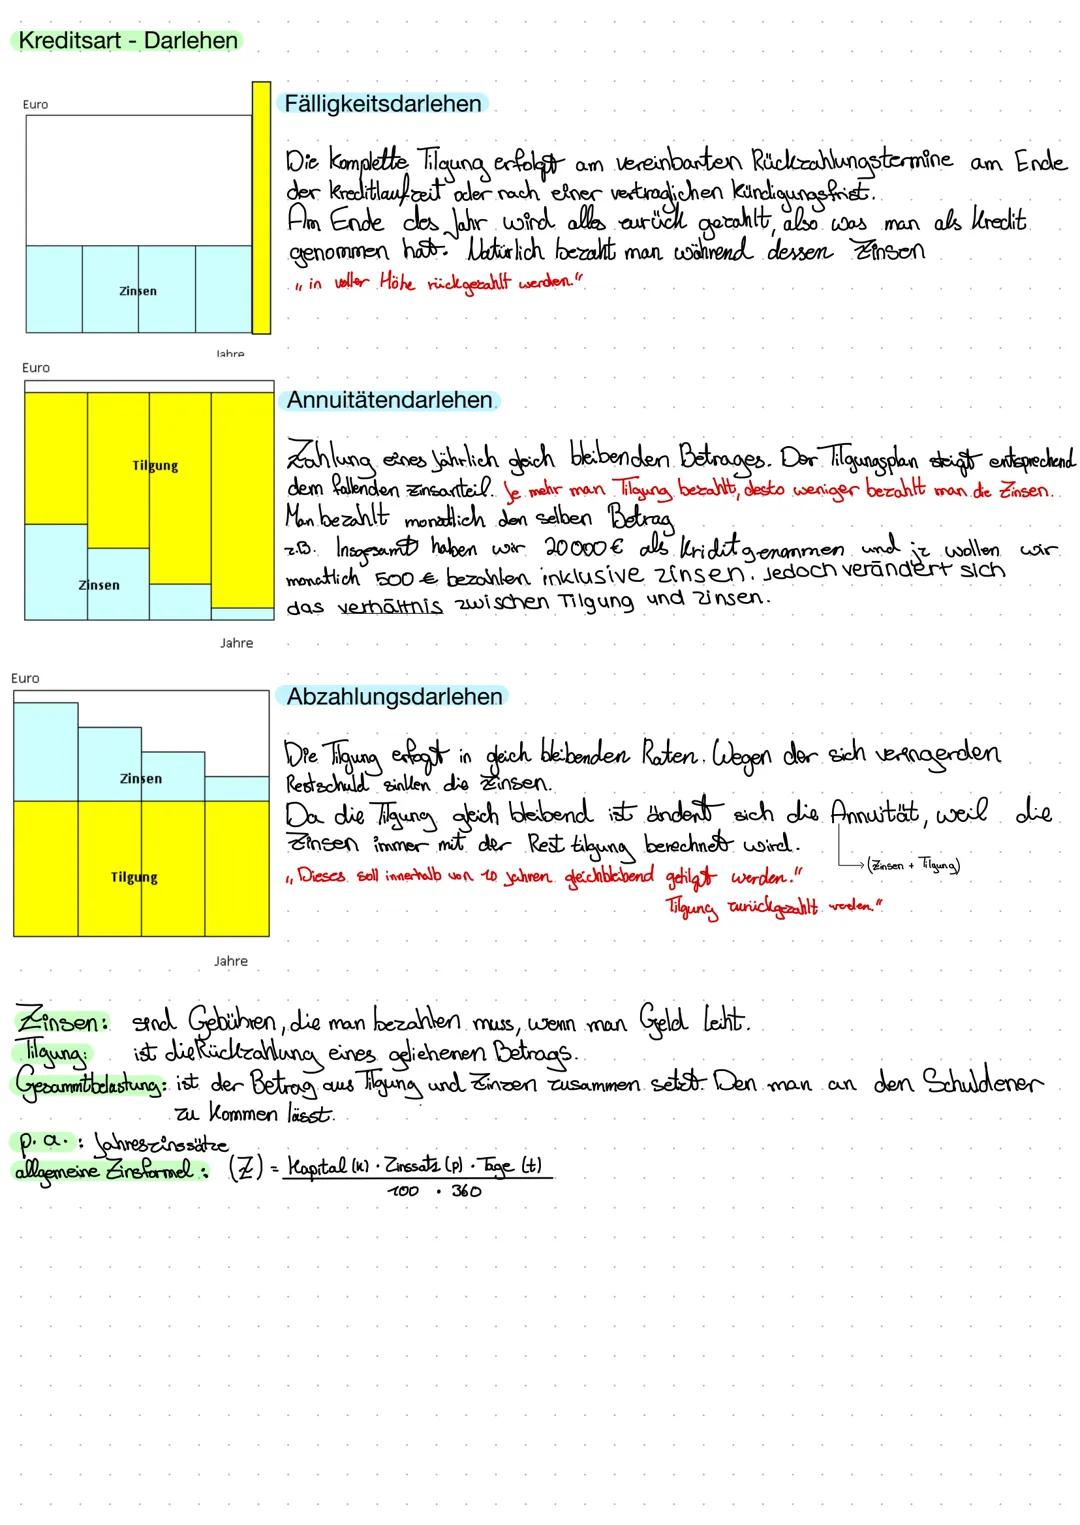 Kreditsart - Darlehen
Euro
Fälligkeitsdarlehen
Die Komplette Tilgung erfolgt am vereinbarten Rückzahlungstermine am Ende
der Kreditlaufzeit oder nach einer vertraglichen Kündigungsfrist.
Am Ende des Jahr wird alles zurück gezahlt, also was man als Kredit
genommen hat. Natürlich bezahlt man während dessen Zinsen
„in voller Höhe rückgezahlt werden."
Zinsen
Jahre
Euro
Annuitätendarlehen
Zahlung eines Jährlich gleich bleibenden Betrages. Der Tilgungsplan steigt entsprechend
dem fallenden Zinsanteil. Je mehr man Tilgung bezahlt, desto weniger bezahlt man die Zinsen.
Man bezahlt monatlich den selben Betrag
z.B. Insgesamt haben wir 20000€ als Kridit genommen und jz wollen wir
monatlich 500€ bezahlen inklusive zinsen. Jedoch verändert sich
das verhältnis zwischen Tilgung und zinsen.
Tilgung
Zinsen
Jahre
Euro
Abzahlungsdarlehen
Die Tilgung erfogt in gleich bleibenden Raten. Wegen der sich veringerden
Restschuld sinken die Zinsen.
Da die Tilgung gleich bleibend ist ändert sich die Annuität, weil die
Zinsen immer mit der Rest tilgung berechnet wird.
→ (Zinsen + Tilgung)
„Dieses soll innerhalb von 10 Jahren gleichbleibend getilgt werden."
Tilgung zurückgezahlt werden."
Zinsen
Tilgung
Jahre
Zinsen: sind Gebühren, die man bezahlen muss, wenn man Geld leiht.
Tilgung: ist die Rückzahlung eines geliehenen Betrags.
Gesammtbelastung: ist der Betrag aus Tilgung und Zinzen zusammen setzt. Den man an den Schuldener
zu kommen lässt.
p.a.: Jahreszinssätze
allgemeine Zinsformel: (Z) = Kapital (K) · Zinssatz (p) · Tage (t)
100 · 360